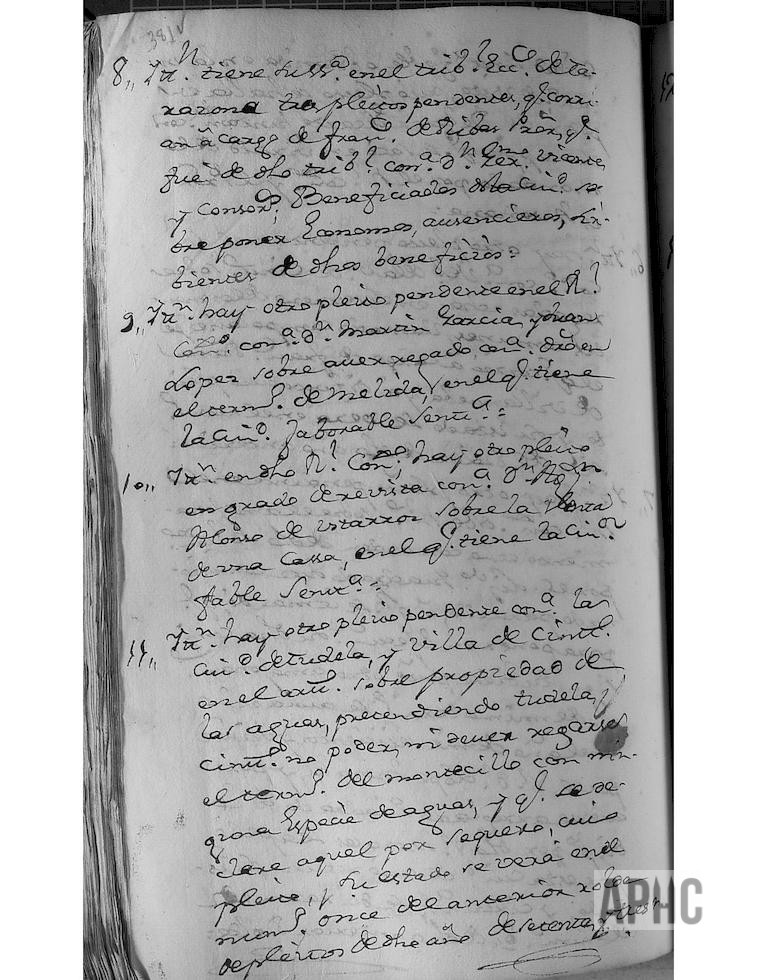 381v
8,, Ittn. tiene su ssa. en el tribl. Ecco. de ta-
razona tres pleitos pendentes, q. corri-
an â cargo de franco. de Ribas Prôr, q.
fue de dho tribl. cona. Dn. Vicente
y Consors, Beneficiados desta ciud. so-
bre poner Economos, ausencieros, Sir-
bientes de dhos beneficios=
9,, Ittn. hay otro pleito pendente en el Rl.
Conso. cona. Dn. Martin Garcia, y Juan
Lopez sobre aver regado cona. drô en
el termo. de Melida, en el q. tiene
la ciud. faborable Senta.=
10,, Ittn. en dho Rl. Conso, hay otro pleito
en grado de revista cona. Dn.
Alonso de sobre la Venta
de vna Cassa, en el q. tiene la ciud.
fable Senta.=
11,, Ittn. hay otro pleito pendente cona. la
ciud. de tudela, y villa de Cintto.
en el artto. sobre propiedad de
las aguas, pretendiendo tudela,
Cintto. no poder, ni dever regarse
el termo. del montecillo con nin-
guna Especie de aguas, y q. se de-
clare aquel por sequero, cuio
pleito, y su estado se verá en el
numo. once del anterior rolde
de pleitos de dho año de setenta, y tres
APHC